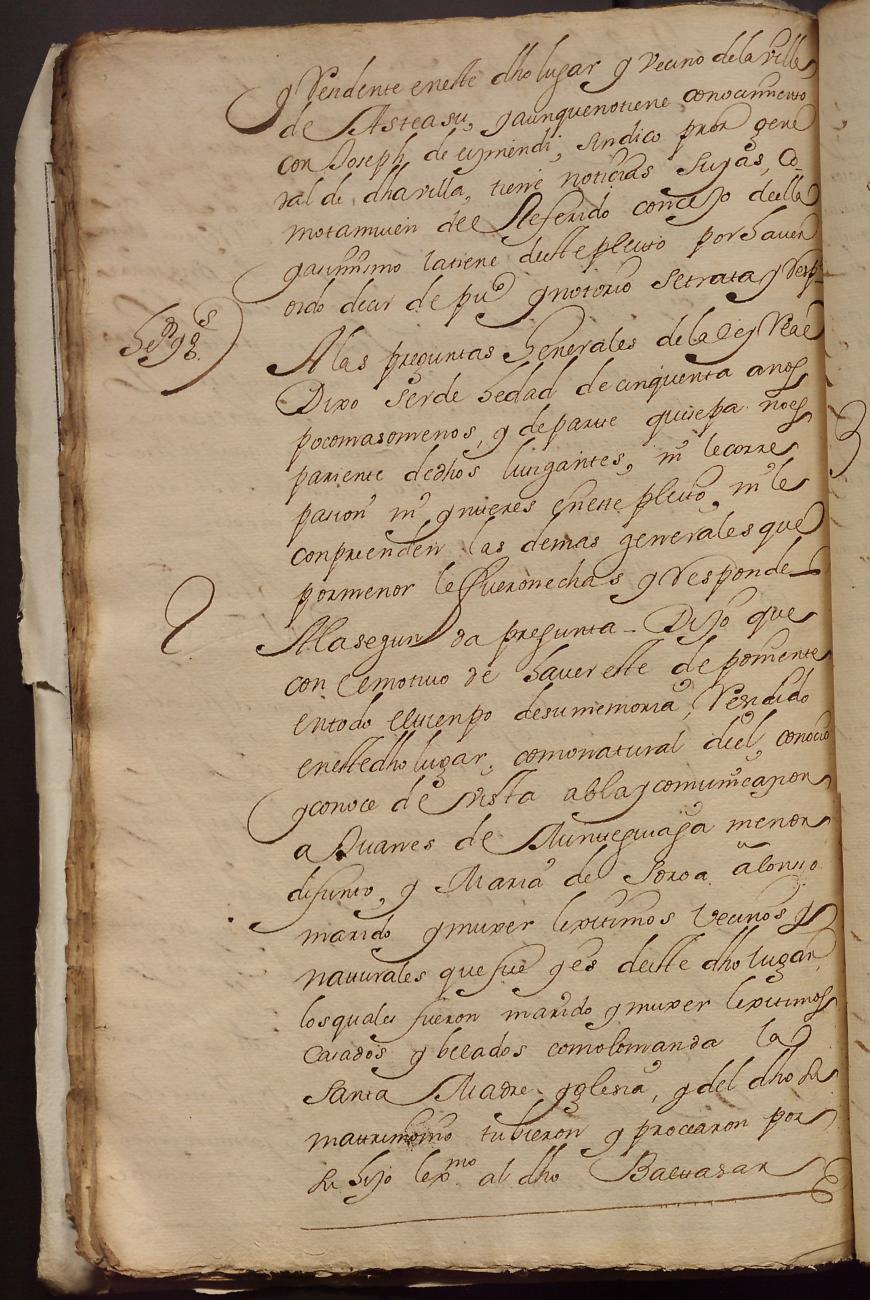 y Residente eneste dho lugar y vecino dela villa
de Asteasu, yaunquenotiene conocimiento
con Joseph de eymendi, sindico pror gene
ral de dha villa, tiene noticias suyas, co
motamuien del Referido concejo della
yasimismo latiene deste pleito por haver
oido decir de puco ynotorio setrata y Respde
A las preguntas Generales dela ley Real
Dixo serde hedad de cinquenta anos
pocomasomenos, y departe quisepa noes
pariente dedhos litigantes, ni lecorre
pasion ni ynteres eneste pleito, ni le
conprenden las demas generales que
pormenor le fueronechas y Responde
2 Alasegunda pregunta - Dijo que
con el motiuo de haver este deponiente
entodo eltienpo desumemoria, Residido
enestedho lugar, comonatural del, conocio
yconoce de vista ablaycomunicazion
a Juanes de menor
difunto, y Maria de Soroa alonso
marido ymuxer lexitimos vecinos y
naturales quefue yes deste dho lugar,
losquales fueron marido ymuxer lexitimos
casados y belados comolomanda la
Santa Madre yglesia, y del dho su
matrimonio tubieron y procearon por
su hijo lexmo al dho Baltasar